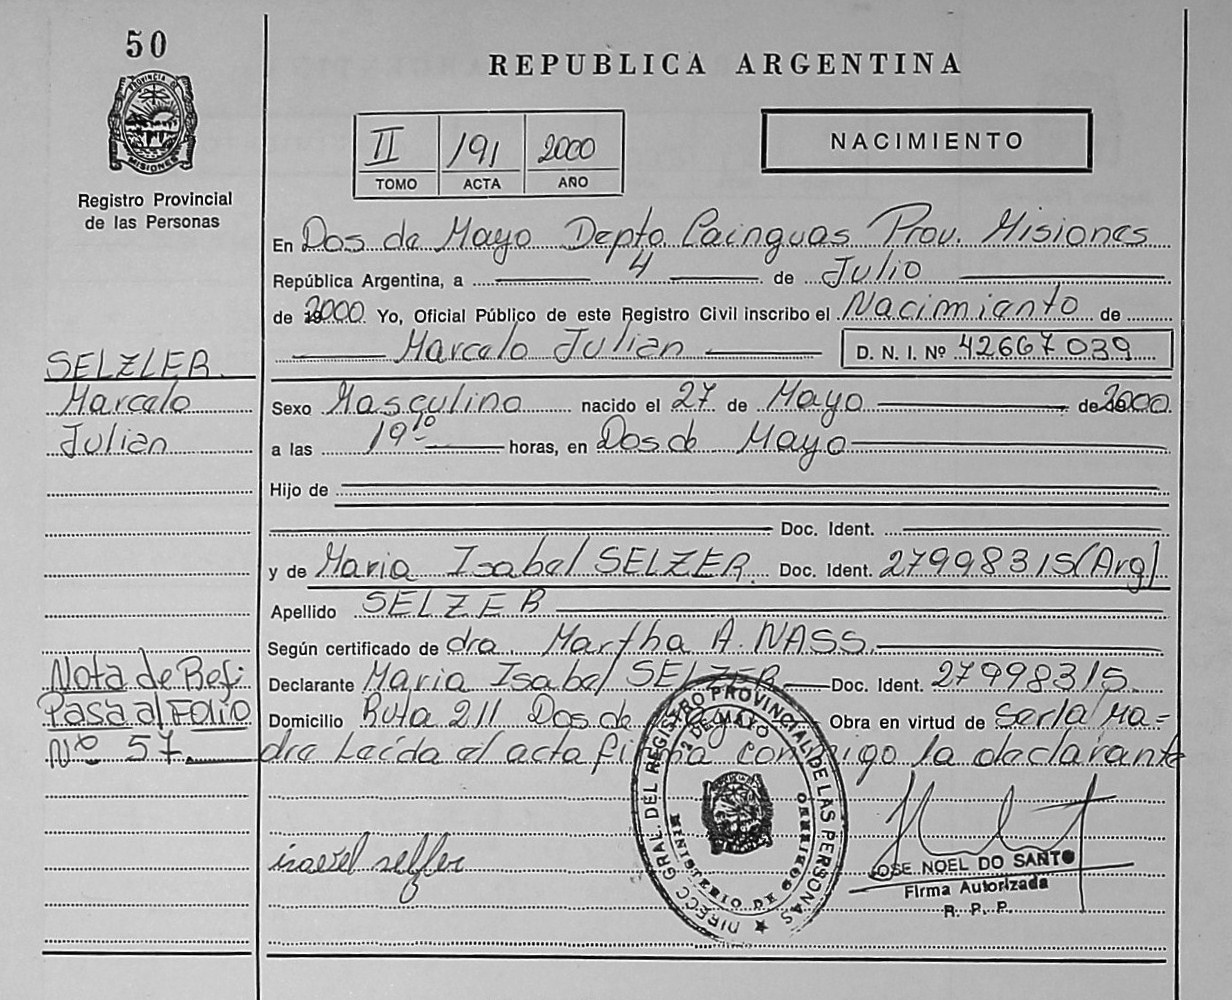 50
PROVINCIA DE
MISIONES
Registro Provincial
de las Personas
REPUBLICA ARGENTINA
II 191 2000
TOMO ACTA AÑO
NACIMIENTO
En Dos de Mayo Depto Cainguas Prov. Misiones
República Argentina, a 4 de Julio
de 2000 Yo, Oficial Público de este Registro Civil inscribo el Nacimiento de
Marcelo Julian D. N. I. Nº 42667039
SELZLER
Marcelo
Julian
Sexo Masculino nacido el 27 de Mayo de 2000
a las 19 10 horas, en Dos de Mayo
Hijo de
Doc. Ident.
y de Maria Isabel SELZER Doc. Ident. 27998315 (Arg)
Apellido SELZER
Según certificado de dra. Martha A. NASS.
Declarante Maria Isabel SELZER Doc. Ident. 27998315
Domicilio Ruta 211 Dos de Mayo Obra en virtud de Serla Ma=
dre Leída el acta firma conmigo la declarante
Nota de Refi
Pasa al FOLIO
Nº 57
DIRECC GRAL. DEL REGISTRO PROVINCIAL DE LAS PERSONAS
2 DE MAYO
MINISTERIO DE GOBIERNO
JOSE NOEL DO SANTO
Firma Autorizada
R. P. P.